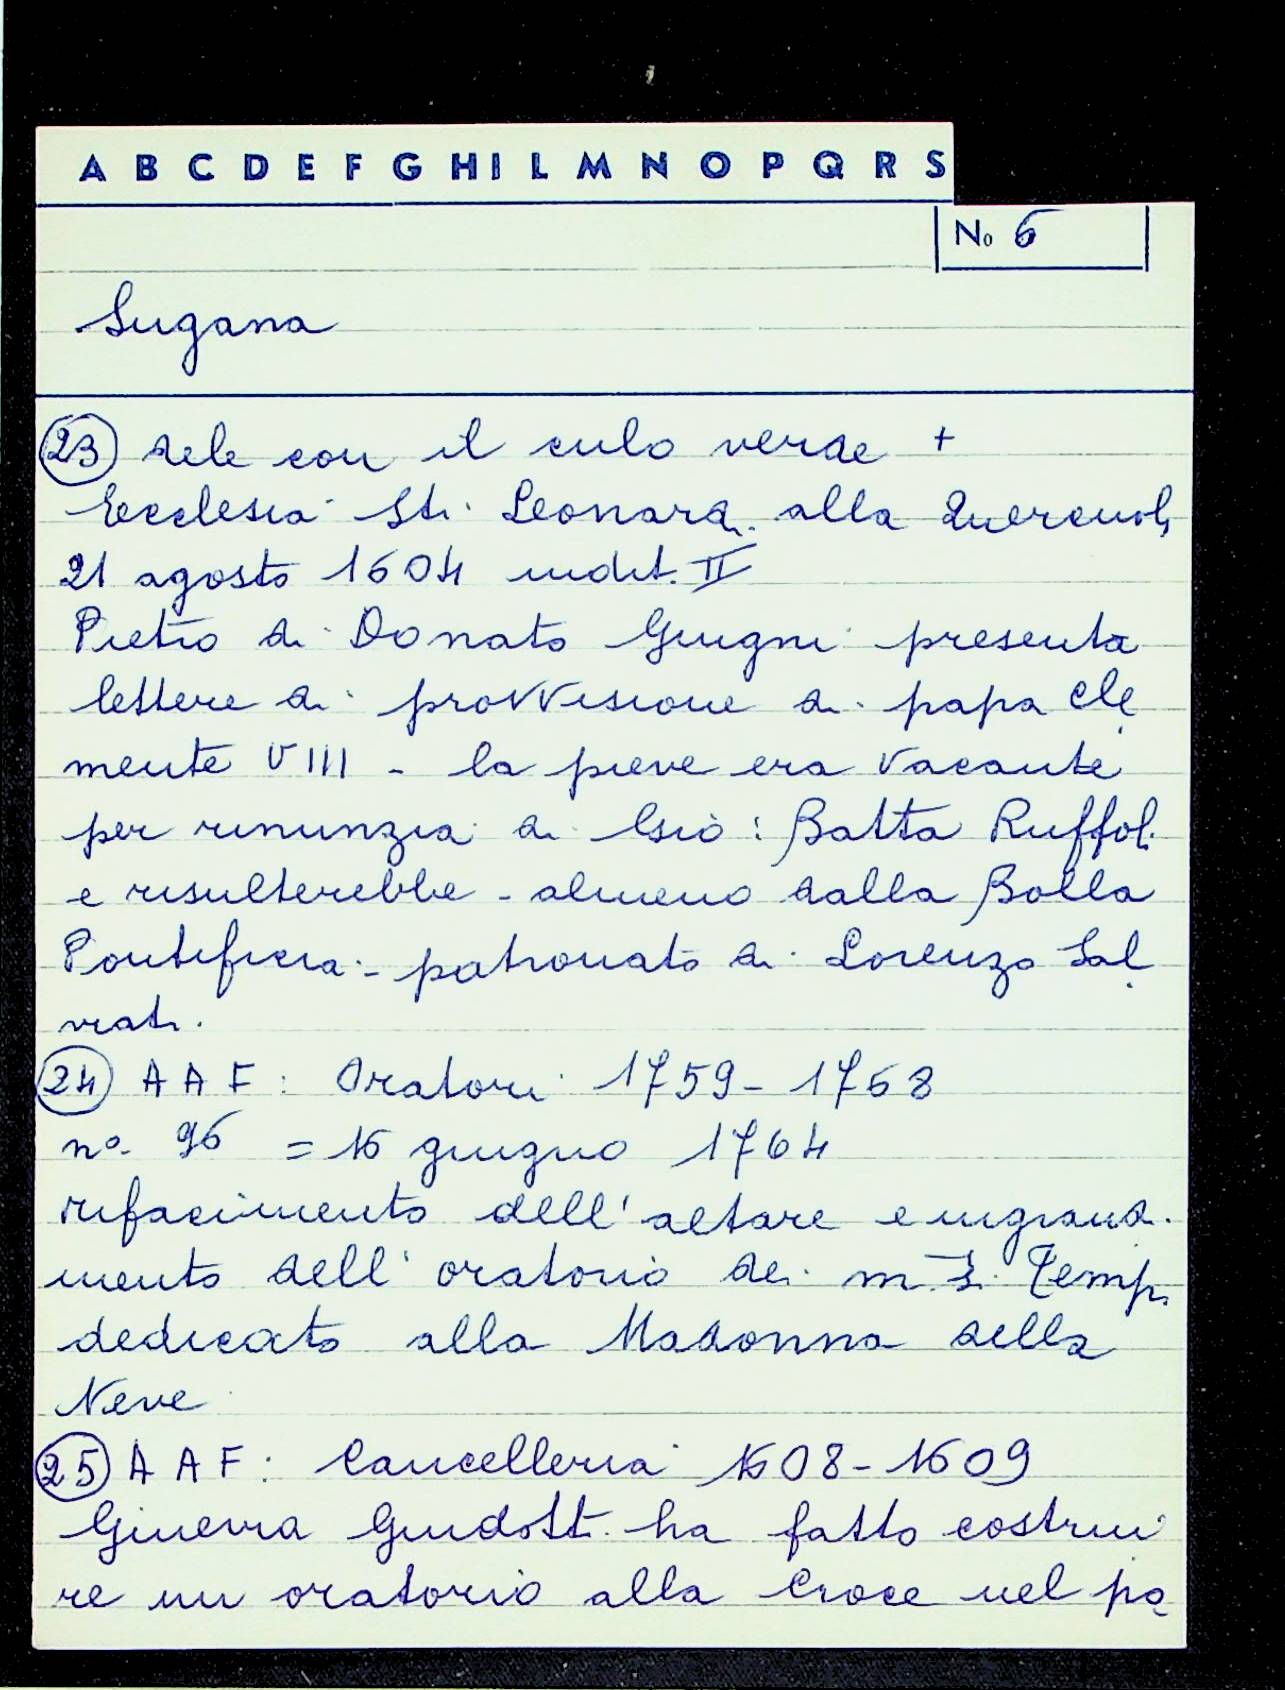 A B C D E F G H I L M N O P Q R S
No 6
Sugana
23 dele con il culo verde +
Ecclesia Sti. Leonardi alla Querciola
21 agosto 1604 indit. II
Pietro di Donato Giugni presenta
lettere di provvisione di papa Cle
mente VIII - la pieve era vacante
per rinunzia di Gio: Batta Ruffoli
e risulterebbe - almeno dalla Bolla
Pontificia - patronato di Lorenzo Sal
viati.
24 A A F : Oratori 1759 - 1768
no. 96 = 16 giugno 1764
rifacimento dell'altare e ingrandi
mento dell'oratorio dei m. si. Tempi
dedicato alla Madonna della
Neve
25 A A F : Cancelleria 1608 - 1609
Ginevra Guidotti ha fatto costrui
re un oratorio alla Croce nel po